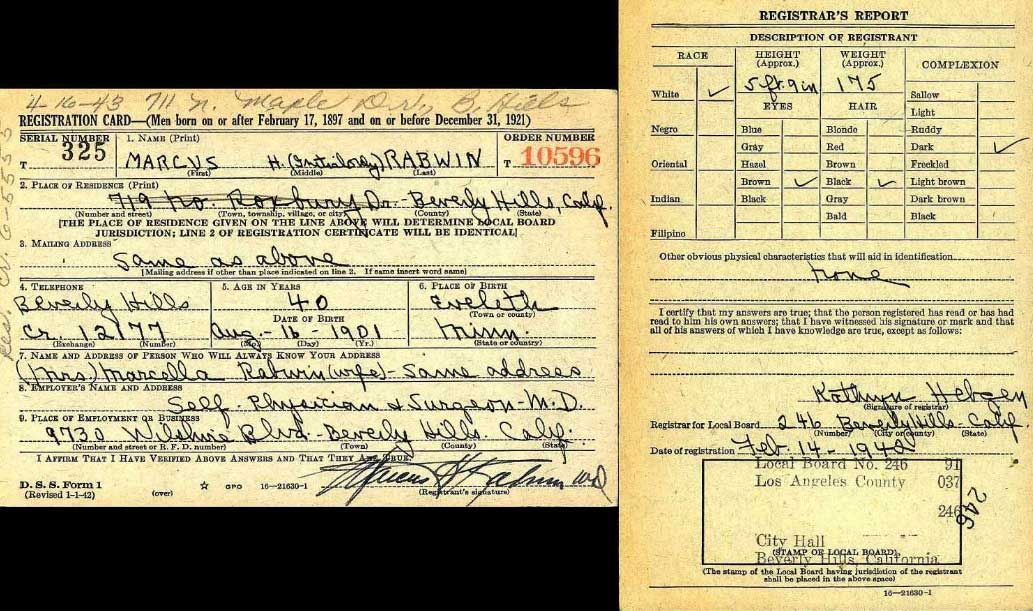 4-16-43 711 N. Maple Dr., B. Hills
REGISTRATION CARD—(Men born on or after February 17, 1897 and on or before December 31, 1921)
SERIAL NUMBER
1. NAME (Print)
ORDER NUMBER
T 325
MARCUS H. RABWIN
T 10596
(First) (Middle) (Last)
2. PLACE OF RESIDENCE (Print)
719 No. Roxbury Dr.-Beverly Hills, Calif.
(Number and street) (Town, township, village, or city) (County) (State)
[THE PLACE OF RESIDENCE GIVEN ON THE LINE ABOVE WILL DETERMINE LOCAL BOARD
JURISDICTION; LINE 2 OF REGISTRATION CERTIFICATE WILL BE IDENTICAL]
3. MAILING ADDRESS
Same as above
[Mailing address if other than place indicated on line 2. If same insert word same]
4. TELEPHONE
5. AGE IN YEARS
6. PLACE OF BIRTH
Beverly Hills
40
Eveleth
DATE OF BIRTH
(Town or county)
Cr. 12177
Aug.-16-1901
Minn.
(Exchange) (Number)
(Mo.) (Day) (Yr.)
(State or country)
7. NAME AND ADDRESS OF PERSON WHO WILL ALWAYS KNOW YOUR ADDRESS
(Mrs.) Marcella Rabwin (wife)-Same address
8. EMPLOYER'S NAME AND ADDRESS
Self Physician & Surgeon-M.D.
9. PLACE OF EMPLOYMENT OR BUSINESS
9730 Wilshire Blvd-Beverly Hills Calif.
(Number and street or R. F. D. number) (Town) (County) (State)
I AFFIRM THAT I HAVE VERIFIED ABOVE ANSWERS AND THAT THEY ARE TRUE.
D. S. S. Form 1
(Revised 1-1-42)
(over)
GPO 16—21630-1
Marcus H Rabwin MD
(Registrant's signature)
REGISTRAR'S REPORT
DESCRIPTION OF REGISTRANT
RACE
HEIGHT
(Approx.)
WEIGHT
(Approx.)
COMPLEXION
5 ft. 9 in
175
White ✓
Sallow
EYES
HAIR
Light
Negro
Blue
Blonde
Ruddy
Gray
Red
Dark ✓
Oriental
Hazel
Brown
Freckled
Brown ✓
Black ✓
Light brown
Indian
Black
Gray
Dark brown
Bald
Black
Filipino
Other obvious physical characteristics that will aid in identification
none
I certify that my answers are true; that the person registered has read or has had
read to him his own answers; that I have witnessed his signature or mark and that
all of his answers of which I have knowledge are true, except as follows:
Kathryn Hebgen
(Signature of registrar)
Registrar for Local Board 246 Beverly Hills-Calif.
(Number) (City or county) (State)
Date of registration Feb. 14-1942
Local Board No. 246 91
Los Angeles County 037
246
246
City Hall
(STAMP OF LOCAL BOARD)
Beverly Hills, California
(The stamp of the Local Board having jurisdiction of the registrant
shall be placed in the above space)
16—21630-1